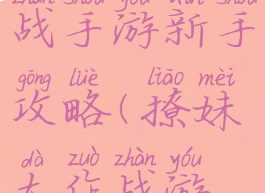 zhàn shǒu yóu xīn shǒu
战手游新手
gōng lüè liāo mèi
攻略(撩妹
dà zuò zhàn yóu
大作战游